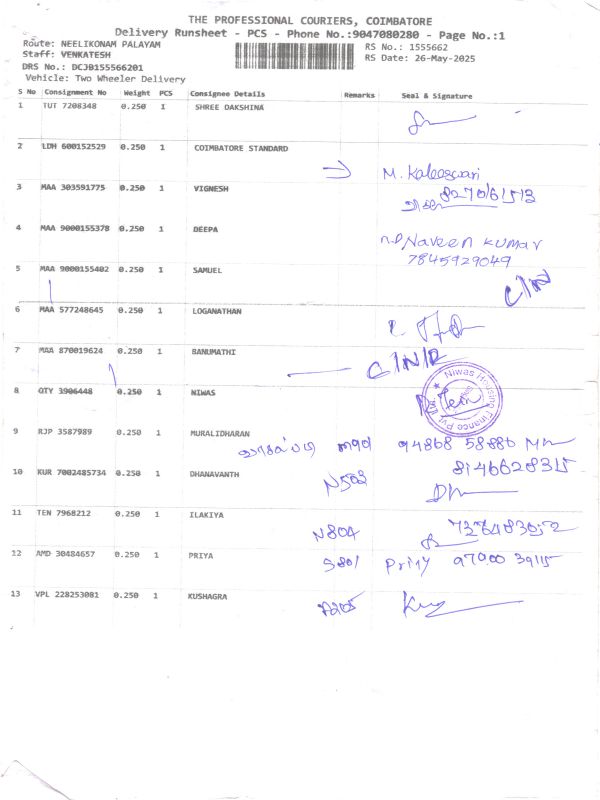 THE PROFESSIONAL COURIERS, COIMBATORE
Delivery Runsheet - PCS - Phone No.:9047080280 - Page No.:1
Route: NEELIKONAM PALAYAM
Staff: VENKATESH
DRS No.: DCJB155566201
Vehicle: Two Wheeler Delivery
RS No.: 1555662
RS Date: 26-May-2025
S No Consignment No Weight PCS Consignee Details Remarks Seal & Signature
1 TUT 7208348 0.250 1 SHREE DAKSHINA
2 LDH 600152529 0.250 1 COIMBATORE STANDARD
M. Kaleeswari
3 MAA 303591775 0.250 1 VIGNESH
4 MAA 9000155378 0.250 1 DEEPA
Naveen Kumar
7845929049
5 MAA 9000155402 0.250 1 SAMUEL
6 MAA 577248645 0.250 1 LOGANATHAN
7 MAA 870019624 0.250 1 BANUMATHI
8 QTY 3906448 0.250 1 NIWAS
Niwas Housing Finance Pvt Ltd
9 RJP 3587989 0.250 1 MURALIDHARAN
94868 58886
10 KUR 7002485734 0.250 1 DHANAVANTH N503
8146628315
11 TEN 7968212 0.250 1 ILAKIYA N804
12 AMD 30484657 0.250 1 PRIYA S801 Priny 97900 39115
13 VPL 228253081 0.250 1 KUSHAGRA